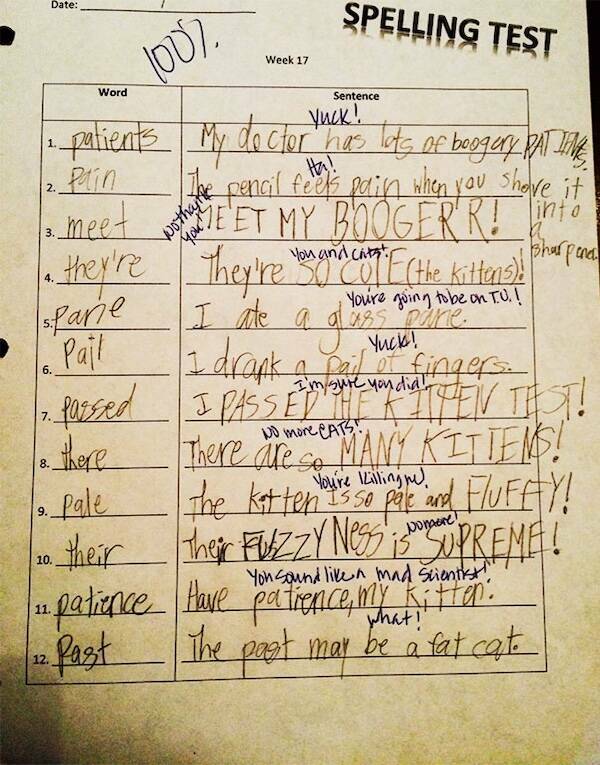 Date:
SPELLING TEST
100%.
Week 17
Word Sentence
Yuck!
1. patients My doctor has lots of boogery PATIENTS.
Ha!
2. Pain The pencil feels pain when you shove it into a sharpener.
No thank you!
3. meet MEET MY BOOGER R!
You and cats!
4. they're They're SO CUTE (the kittens)!
You're going to be on T.V.!
5. Pane I ate a glass pane.
Yuck!
6. Pail I drank a pail of fingers.
I'm sure you did!
7. passed I PASSED THE KITTEN TEST!
NO more CATS!
8. there There are so MANY KITTENS!
You're killing me!
9. pale The kitten is so pale and FLUFFY!
No more!
10. their Their FUZZYNess is SUPREME!
You sound like a mad scientist!
11. patience Have patience, my kitten.
What!
12. Past The past may be a fat cat.